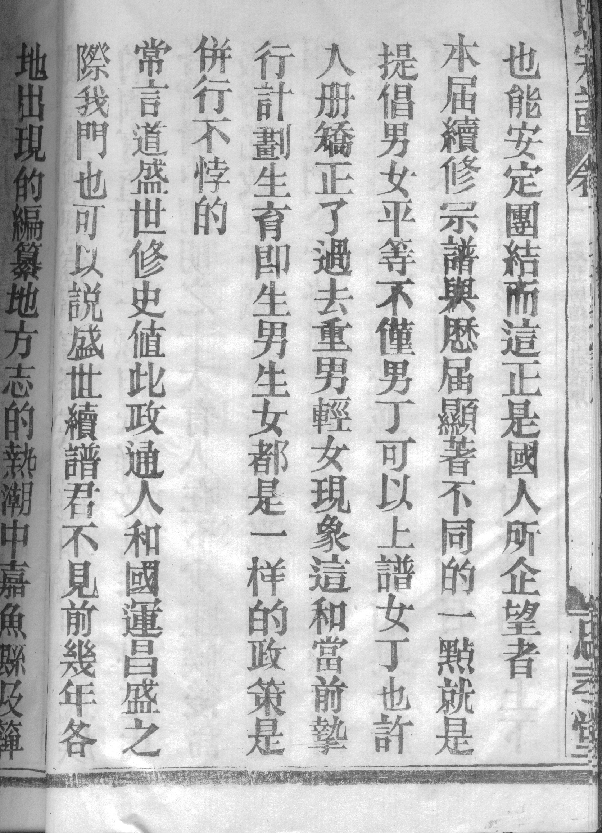 也能安定團結而這正是國人所企望者
本届續修宗譜與歷届顯著不同的一點就是
提倡男女平等不僅男丁可以上譜女丁也許
入册矯正了過去重男輕女現象這和當前執
行計劃生育即生男生女都是一样的政策是
併行不悖的
常言道盛世修史值此政通人和國運昌盛之
際我門也可以説盛世續譜君不見前幾年各
地出現的編纂地方志的热潮中嘉魚縣及